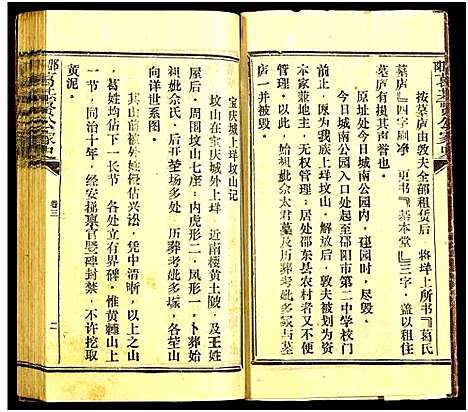 按墓庐由敦夫全部租赁后 将垟上所书『葛氏
墓庐』四字刷净 更书『基本堂』三字 盖以租住
墓庐有损其声誉也。
原址处今日城南公园内 建园时 尽毁。
今日城南公园入口处起至邵阳市第二中学校门
前止 亦为我族上垟坟山 解放后 敦夫被划为资
本兼地主 无权管理；居处邵东县农村者 又无暇
管理。以此 始祖妣佘太君墓及历葬考妣多冢与墓
庐一并被毁。
宝庆城上垟坟山记
坟山在宝庆城外上垟 近南楼黄土陂 及王姓
屋后 周围坟山七座：内虎形二 凤形一 卜葬始
祖妣佘氏 后开茔场多处 历葬考妣多塚 各茔山
向详世系图。
其山前被外姓侵估兴讼 凭中清晰 以上之山
葛姓均估下一长节 各处立有界碑 惟黄辣山上
一节 同治十年 经安
官竖碑封禁 不许挖取
黄泥。
卷三
二